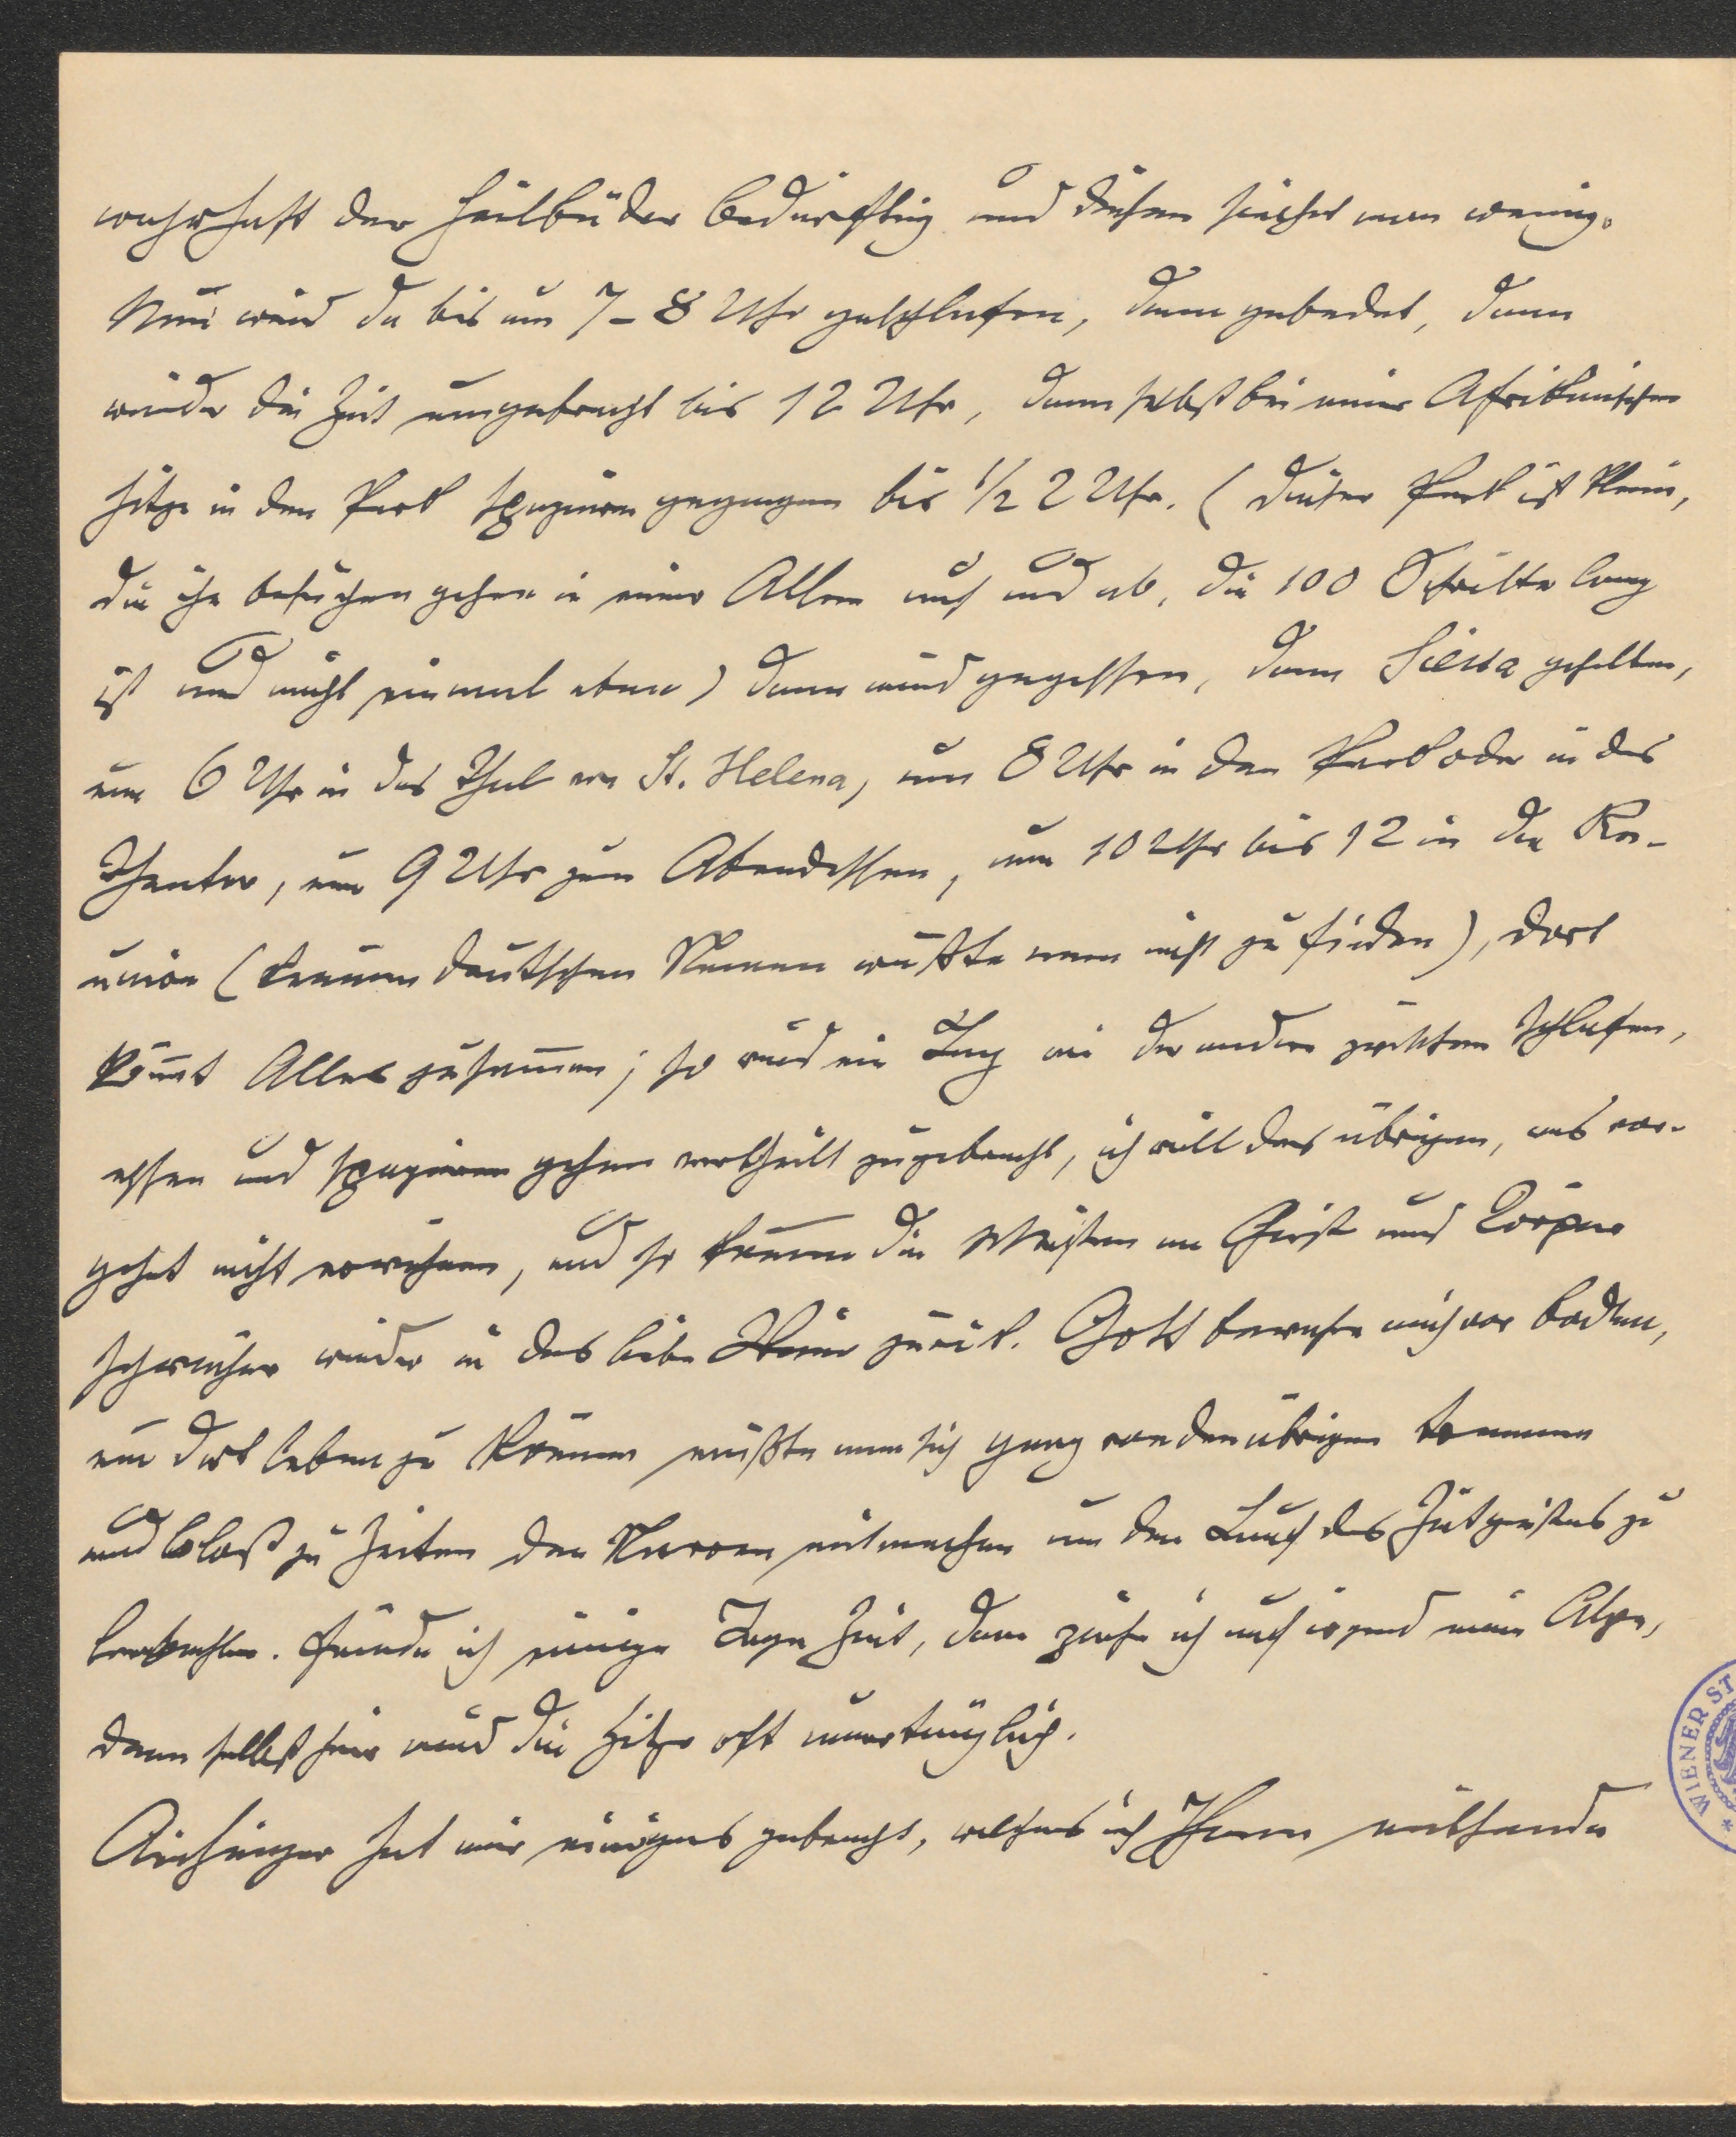 wahrhaft der Heilbäder bedürftig und diesen siehet man wenig.
Nun wird da bis um 7–8 Uhr geschlafen, dann gebadet, dann
wieder die Zeit umgebracht bis 12 Uhr, dann selbst bei einer Afrikanischen
Hitze in den Park spazieren gegangen bis ½ 2 Uhr. (dieser Park ist klein,
die ihn besuchen gehen in einer Allee auf und ab, die 100 Schritte lang
ist und nicht einmal eben) dann wird gegessen, dann Siesta gehalten,
um 6 Uhr in das Thal von St. Helena, um 8 Uhr in den Park oder in das
Theater, um 9 Uhr zum Abendessen, um 10 Uhr bis 12 in die Re-
union (keinen deutschen Namen wußte man nicht zu finden), dort
kom̅t Alles zusam̅en; so wird ein Tag wie der andere zwischen schlafen,
essen und spazieren gehen vertheilt zugebracht, ich will das übrigen, was vor-
gehet nicht erwehnen, und so kommen die Meisten an Geist und Körper
schwächer wieder in das liebe Wien zurük. Gott bewahre mich vor Baden,
um dort leben zu können müßte man sich ganz von den übrigen trennen
und bloß zu Zeiten den Narren mitmachen um den Lauf des Zeitgeistes zu
beobachten. Finde ich einige Tage Zeit, dann ziehe ich auf irgend eine Alpe,
denn selbst hier wird die Hitze oft unerträglich.
Aichinger hat mir einiges gebracht, welches ich Ihnen mitsende
WIENER ST